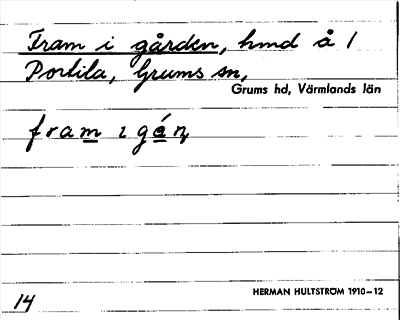 Fram i gården, hmd å 1
Portila, Grums sn,
Grums hd, Värmlands län
fram ı gán̥
HERMAN HULTSTRÖM 1910–12
14